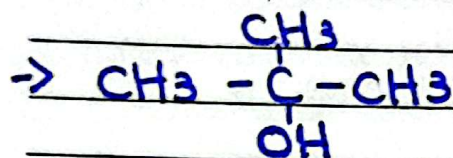 CH3
-> CH3 - C - CH3
OH